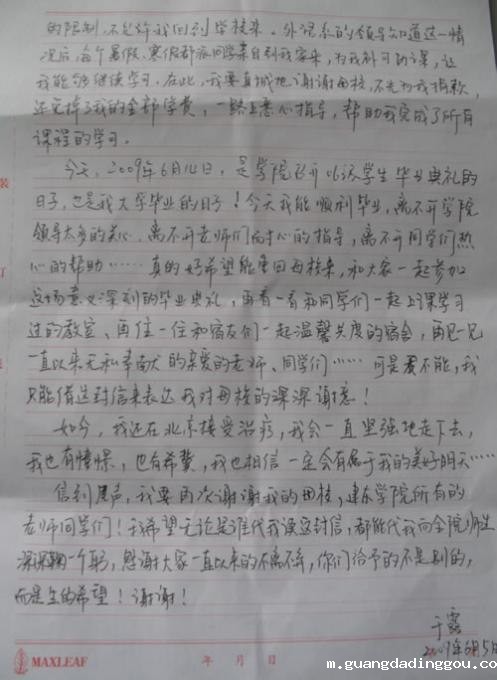 的限制,不允许我回到学校来。外语系的领导知道这一情
况后,每个暑假、寒假都派同学亲自到我家来,为我补习功课,让
我能够继续学习。在此,我要真诚地谢谢母校,不光为我捐款,
还免掉了我的全部学费,一路上悉心指导,帮助我完成了所有
课程的学习。
今天,2009年6月14日,是学院召开09派学生毕业典礼的
日子,也是我大学毕业的日子!今天我能顺利毕业,离不开学院
领导太多的关心,离不开老师们耐心的指导,离不开同学们热
心的帮助……真的好希望能重回母校来,和大家一起参加
这场意义深刻的毕业典礼,再看一看和同学们一起上课学习
过的教室、再住一住和宿友们一起温馨共度的宿舍,再见一见
一直以来无私奉献的亲爱的老师、同学们……可是爱不能,我
只能借这封信来表达我对母校的深深谢意!
如今,我还在北京接受治疗,我会一直坚强地走下去,
我也有憧憬,也有希冀,我也相信一定会有属于我的美好明天……
信到尾声,我要再次谢谢我的母校,建东学院所有的
老师同学们!我希望无论是谁代我读这封信,都能代我向全院师生
深深鞠一个躬,感谢大家一直以来的不离不弃,你们给予的不是别的,
而是生的希望!谢谢!
于露
2009年6月5日
MAXLEAF
年 月 日
装
订
m.guangdadinggou.co